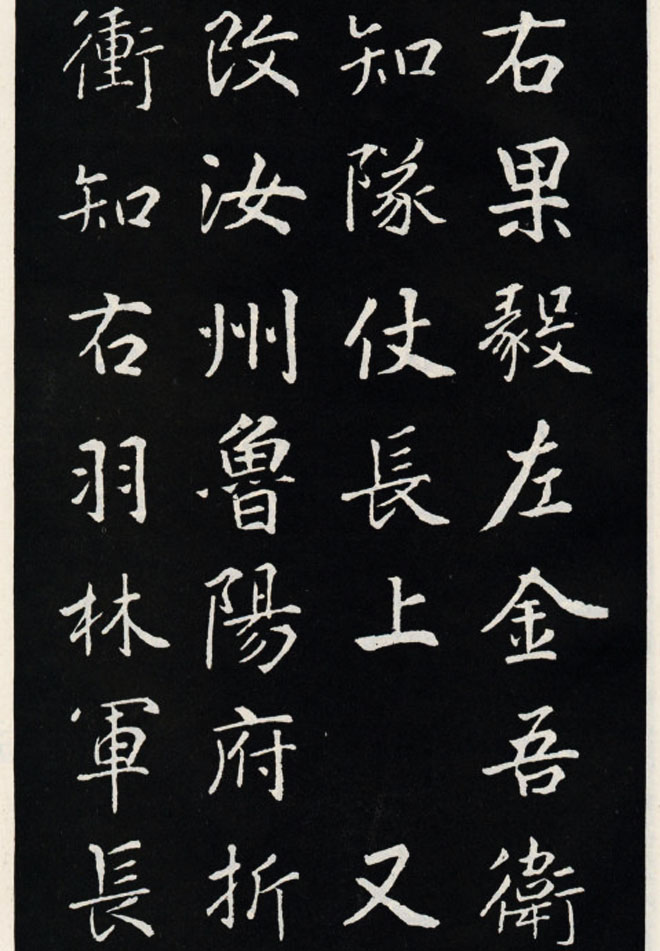 右果毅左金吾衛
知隊仗長上 又
改汝州魯陽府折
衝知右羽林軍長